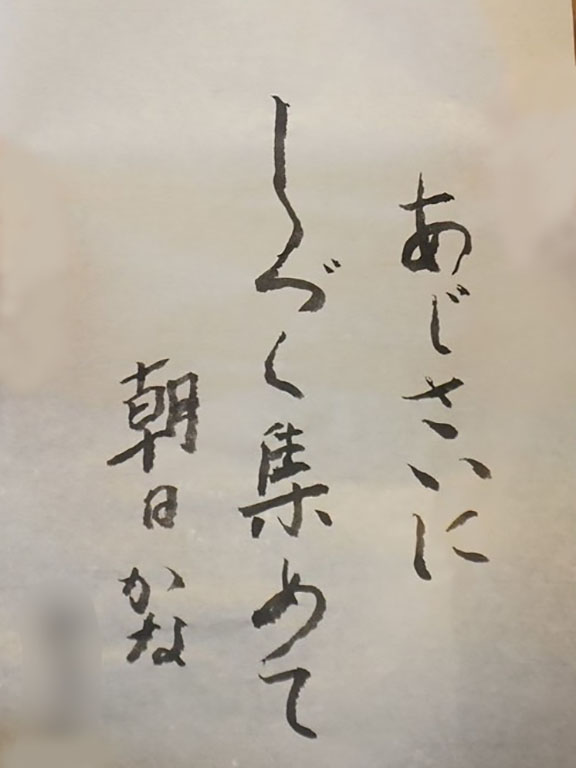 あじさいに
しづく集めて
朝日かな